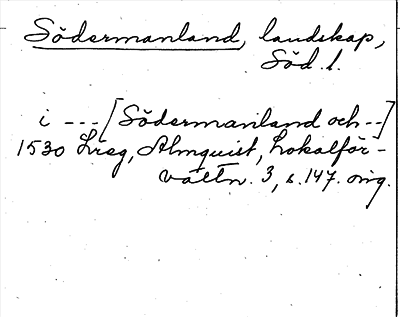 Södermanland, landskap,
Söd. l.
i --- [Södermanland och --]
1530 Lreg, Almquist, Lokalför-
valtn. 3, s. 147. orig.